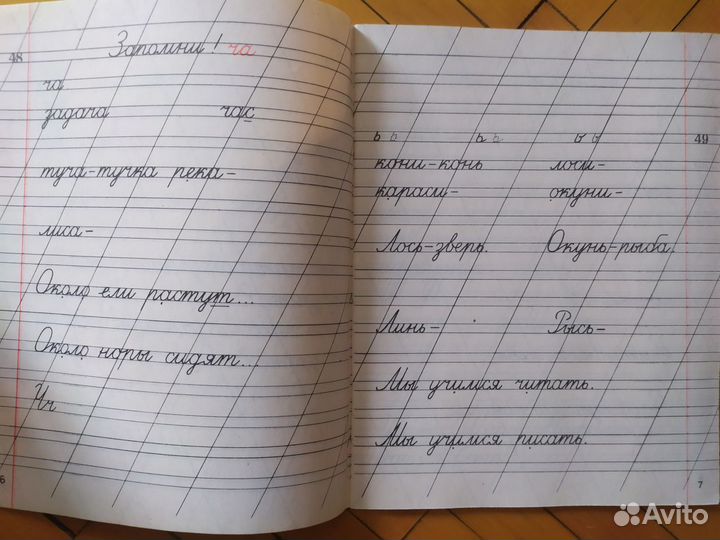 48
Запомни! ча
ча
задача час
туча-тучка река-
лиса-
Около ели растут...
Около норы сидят...
Чч
6
ь ь ь ь ь ь
49
кони-конь лоси-
караси- окуни-
Лось-зверь. Окунь-рыба.
Линь- Рысь-
Мы учимся читать.
Мы учимся писать.
7
Avito